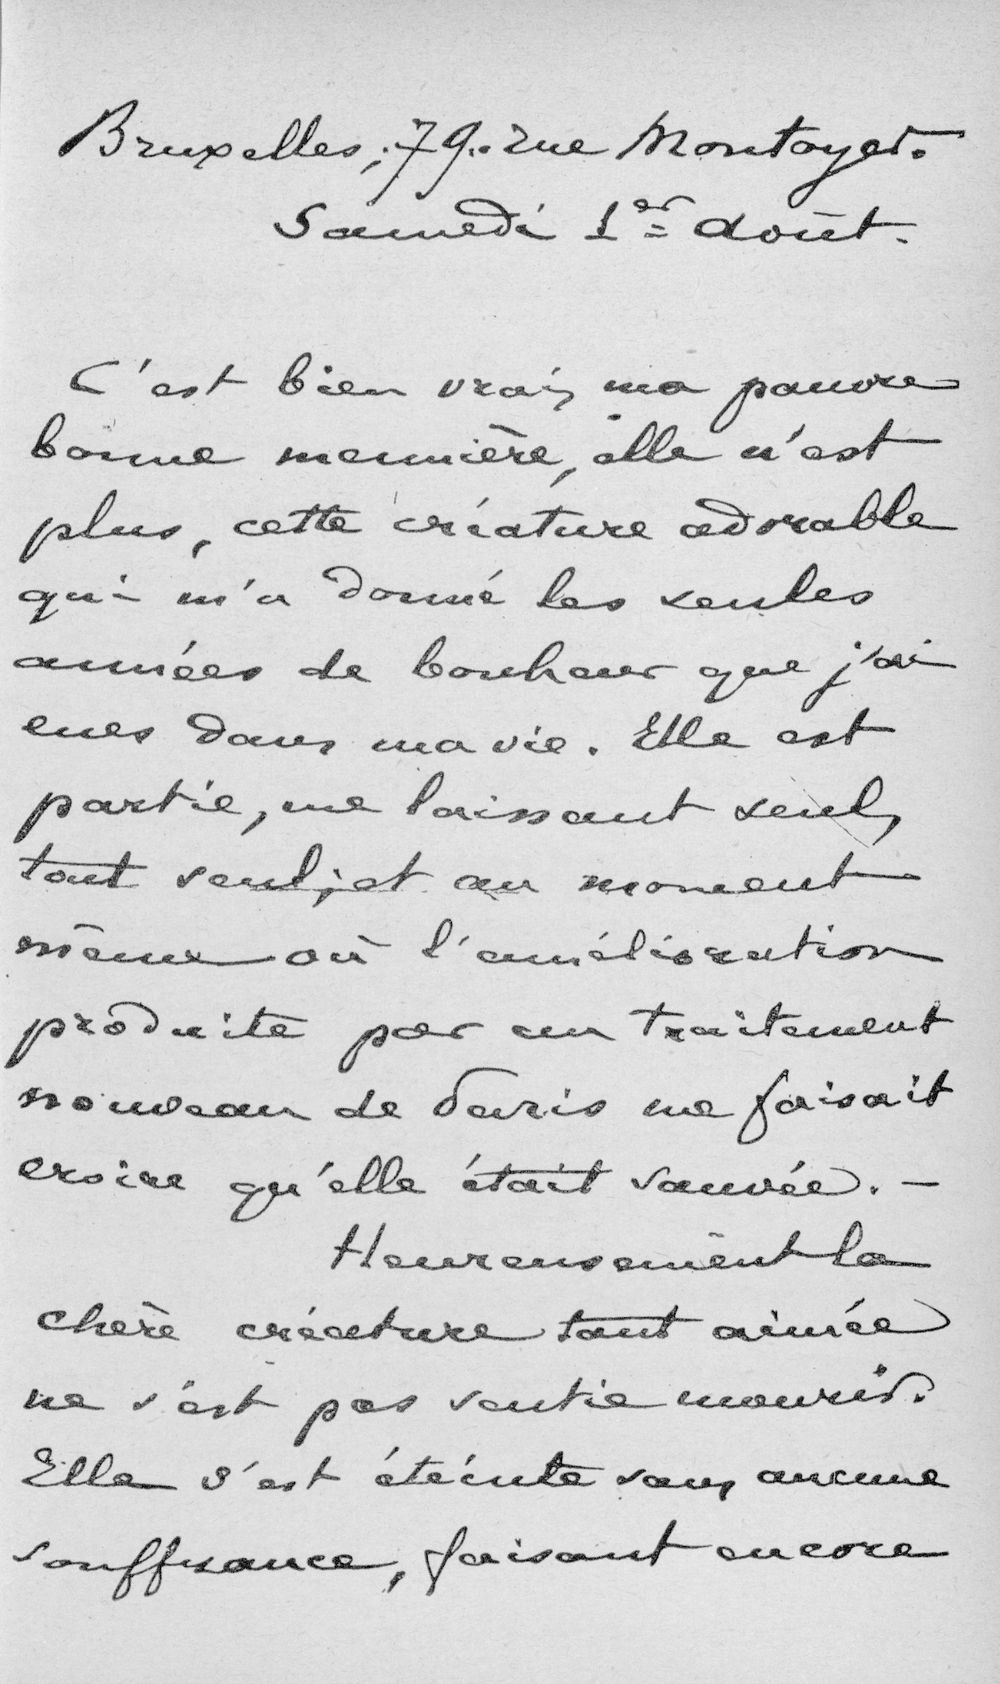 Bruxelles, 79. rue Montoyer.
Samedi 1er Août.
C'est bien vrai, ma pauvre
bonne meunière, elle n'est
plus, cette créature adorable
qui m'a donné les seules
années de bonheur que j'ai
eues dans ma vie. Elle est
partie, me laissant seul,
tout seul; et au moment
même où l'amélioration
produite par un traitement
nouveau de Paris me faisait
croire qu'elle était sauvée. —
Heureusement la
chère créature tant aimée
ne s'est pas sentie mourir.
Elle s'est éteinte sans aucune
souffrance, faisant encore